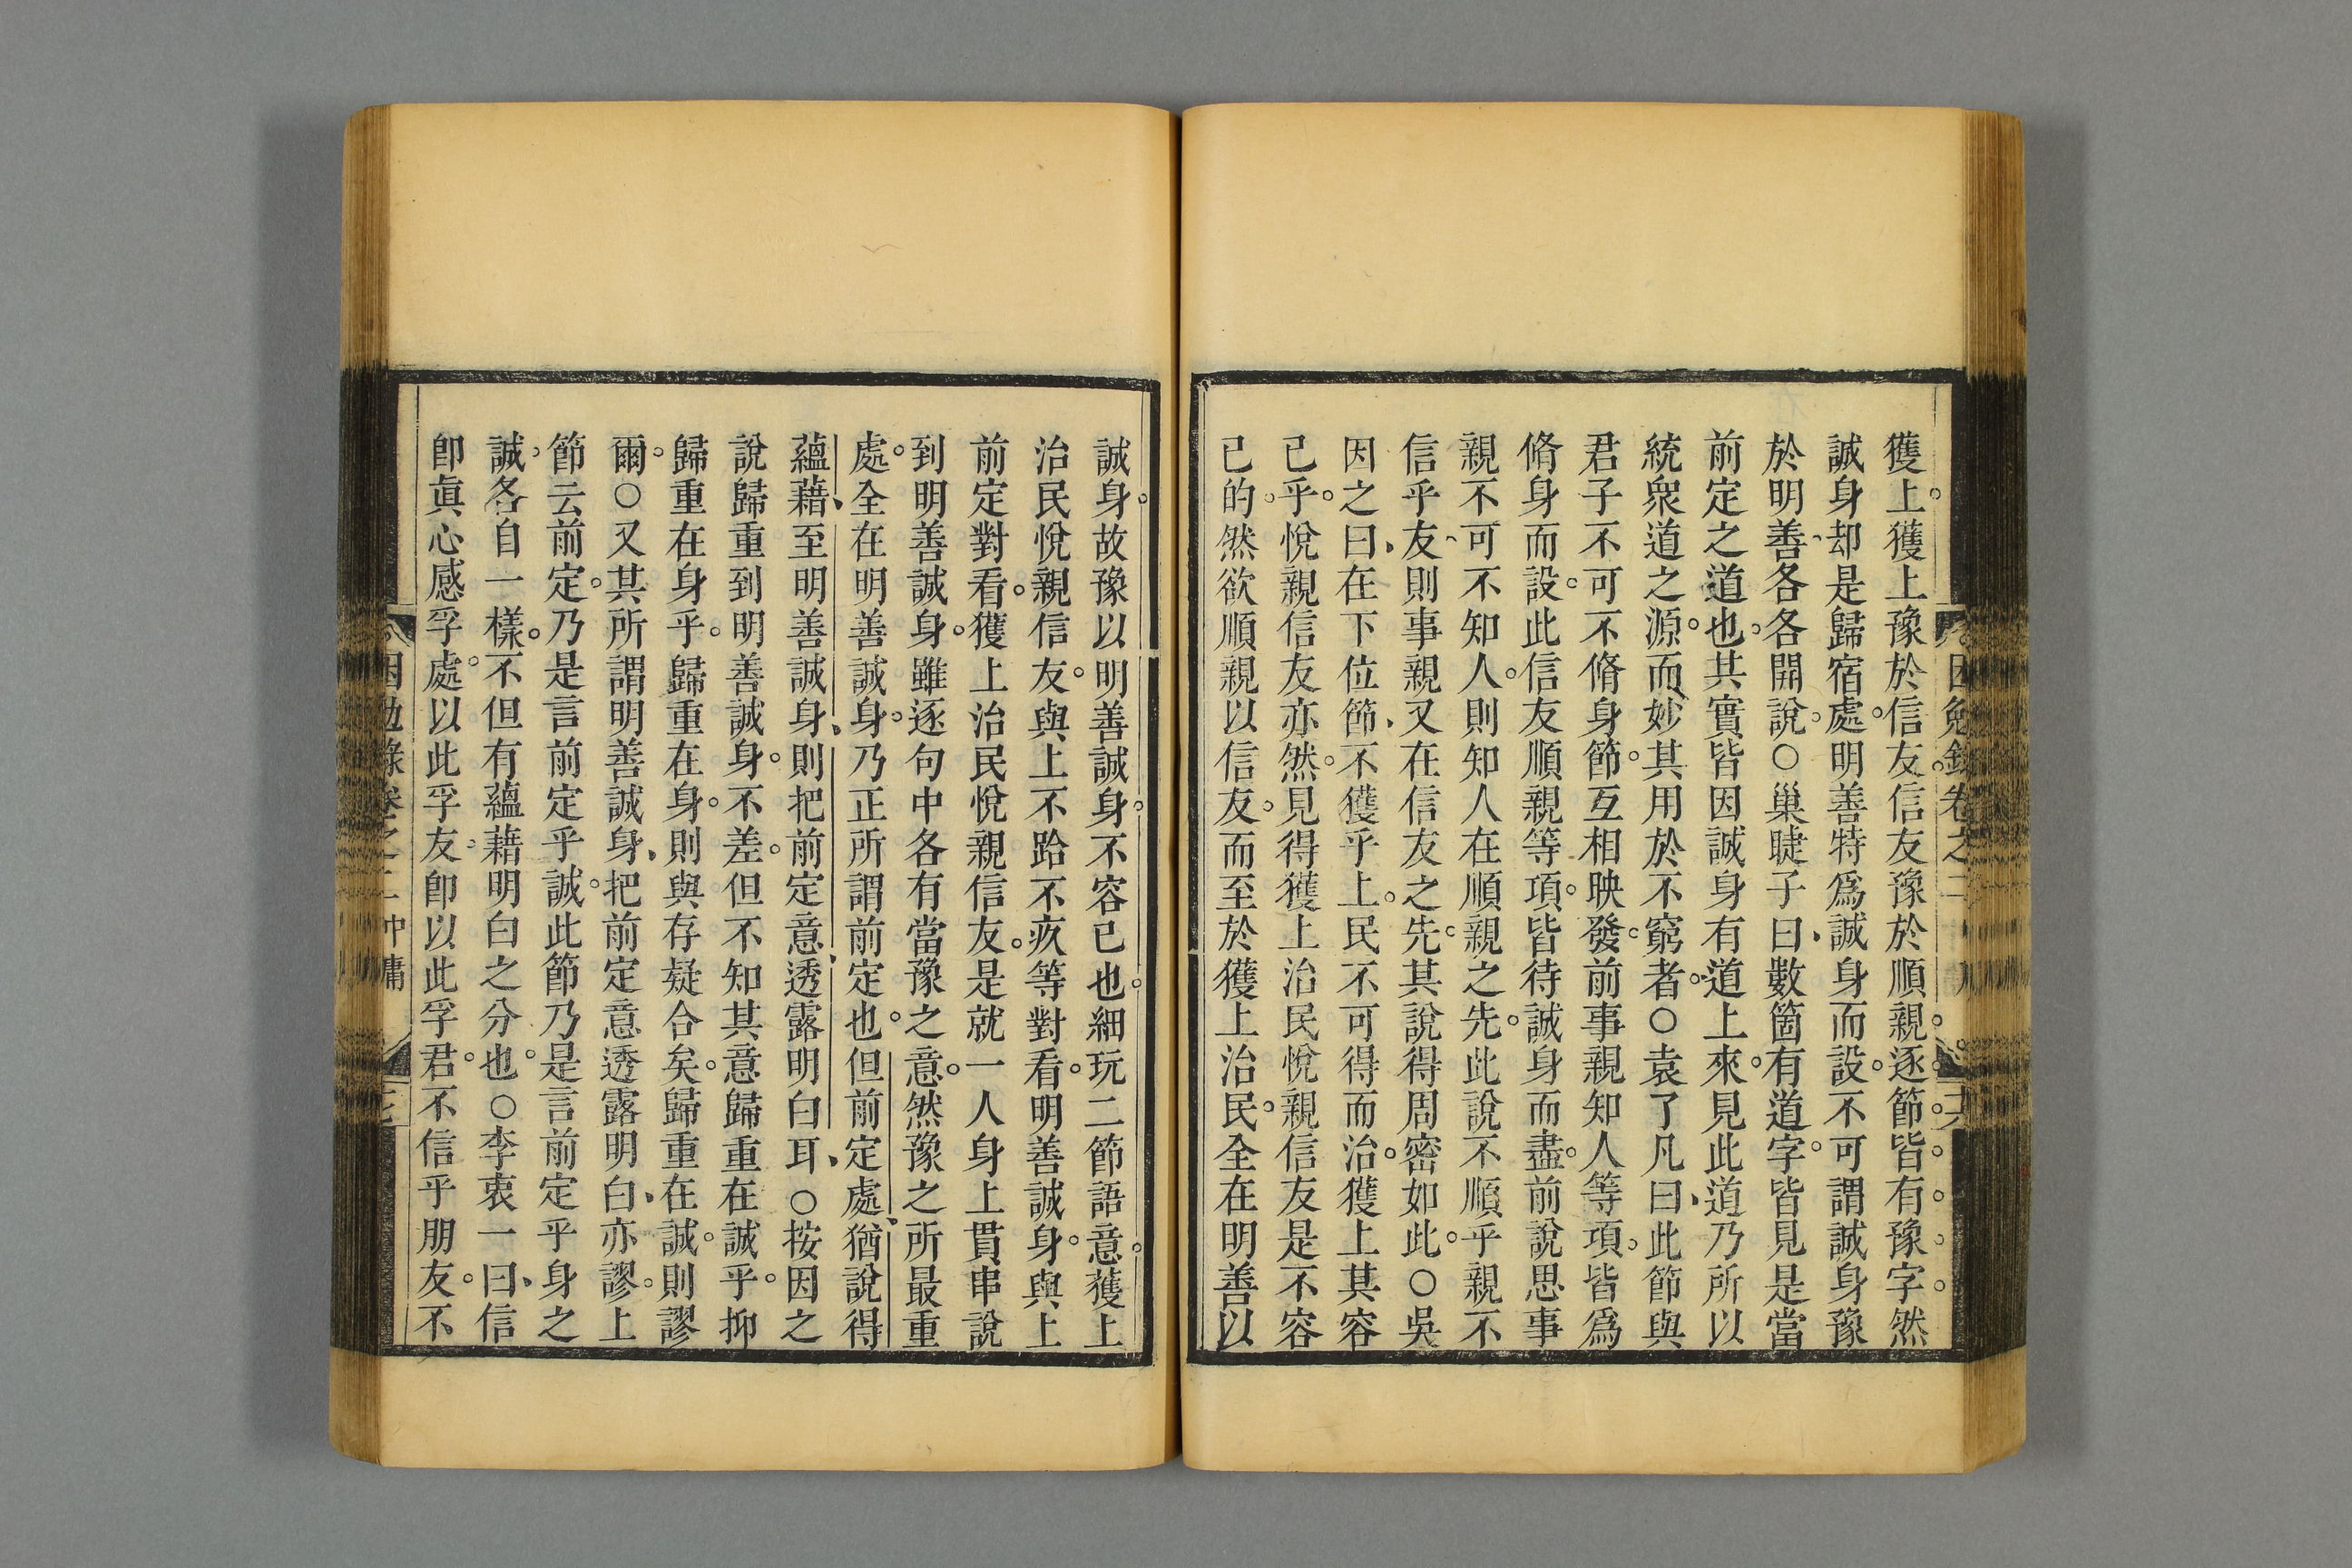 獲上獲上豫於信友信友豫於順親逐節皆有豫字然
誠身却是歸宿處明善特爲誠身而設不可謂誠身豫
於明善各各開說○巢睫子曰數箇有道字皆見是當
前定之道也其實皆因誠身有道上來見此道乃所以
統衆道之源而妙其用於不窮者○袁了凡曰此節與
君子不可不脩身節互相映發前事親知人等項皆爲
脩身而設此信友順親等項皆待誠身而盡前說思事
親不可不知人則知人在順親之先此說不順乎親不
信乎友則事親又在信友之先其說得周密如此○吳
因之曰在下位節不獲乎上民不可得而治獲上其容
已乎悅親信友亦然見得獲上治民悅親信友是不容
已的然欲順親以信友而至於獲上治民全在明善以
誠身故豫以明善誠身不容已也細玩二節語意獲上
治民悅親信友與上不跲不疚等對看明善誠身與上
前定對看獲上治民悅親信友是就一人身上貫串說
到明善誠身雖逐句中各有當豫之意然豫之所最重
處全在明善誠身乃正所謂前定也但前定處猶說得
蘊藉至明善誠身則把前定意透露明白耳○按因之
說歸重到明善誠身不差但不知其意歸重在誠乎抑
歸重在身乎歸重在身則與存疑合矣歸重在誠則謬
爾○又其所謂明善誠身把前定意透露明白亦謬上
節云前定乃是言前定乎誠此節乃是言前定乎身之
誠各自一樣不但有蘊藉明白之分也○李衷一曰信
卽眞心感孚處以此孚友卽以此孚君不信乎朋友不
困勉錄卷之二中庸